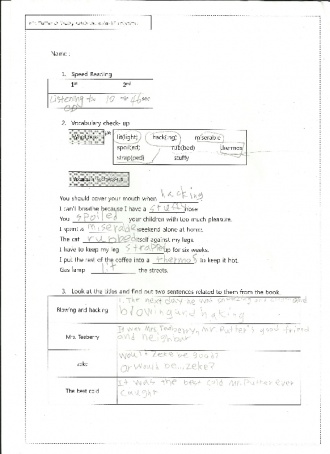 Name :
1. Speed Reading
1st 2nd
Listening to 10
2. Vocabulary check- up
lit(light) hack(ing) miserable
spoil(ed) rub(bed) thermos
strap(ped) stuffy
You should cover your mouth when hacking
I can't breathe because I have a stuffy nose
You spoiled your children with too much pleasure.
I spent a miserable weekend alone at home.
The cat rubbed itself against my legs.
I have to keep my leg strapped up for six weeks.
I put the rest of the coffee into a thermos to keep it hot.
Gas lamp lit the streets.
3. Look at the titles and find out two sentences related to them from the book.
Blowing and hacking
1. The next day he was and
blowing and haking
Mrs. Teeberry
It was Mrs. Teaberry, Mr. Putter's good friend
and neighbor
zeke
Would zeke be good?
Or would be...zeke?
The best cold
It was the best cold Mr. Putter ever
caught